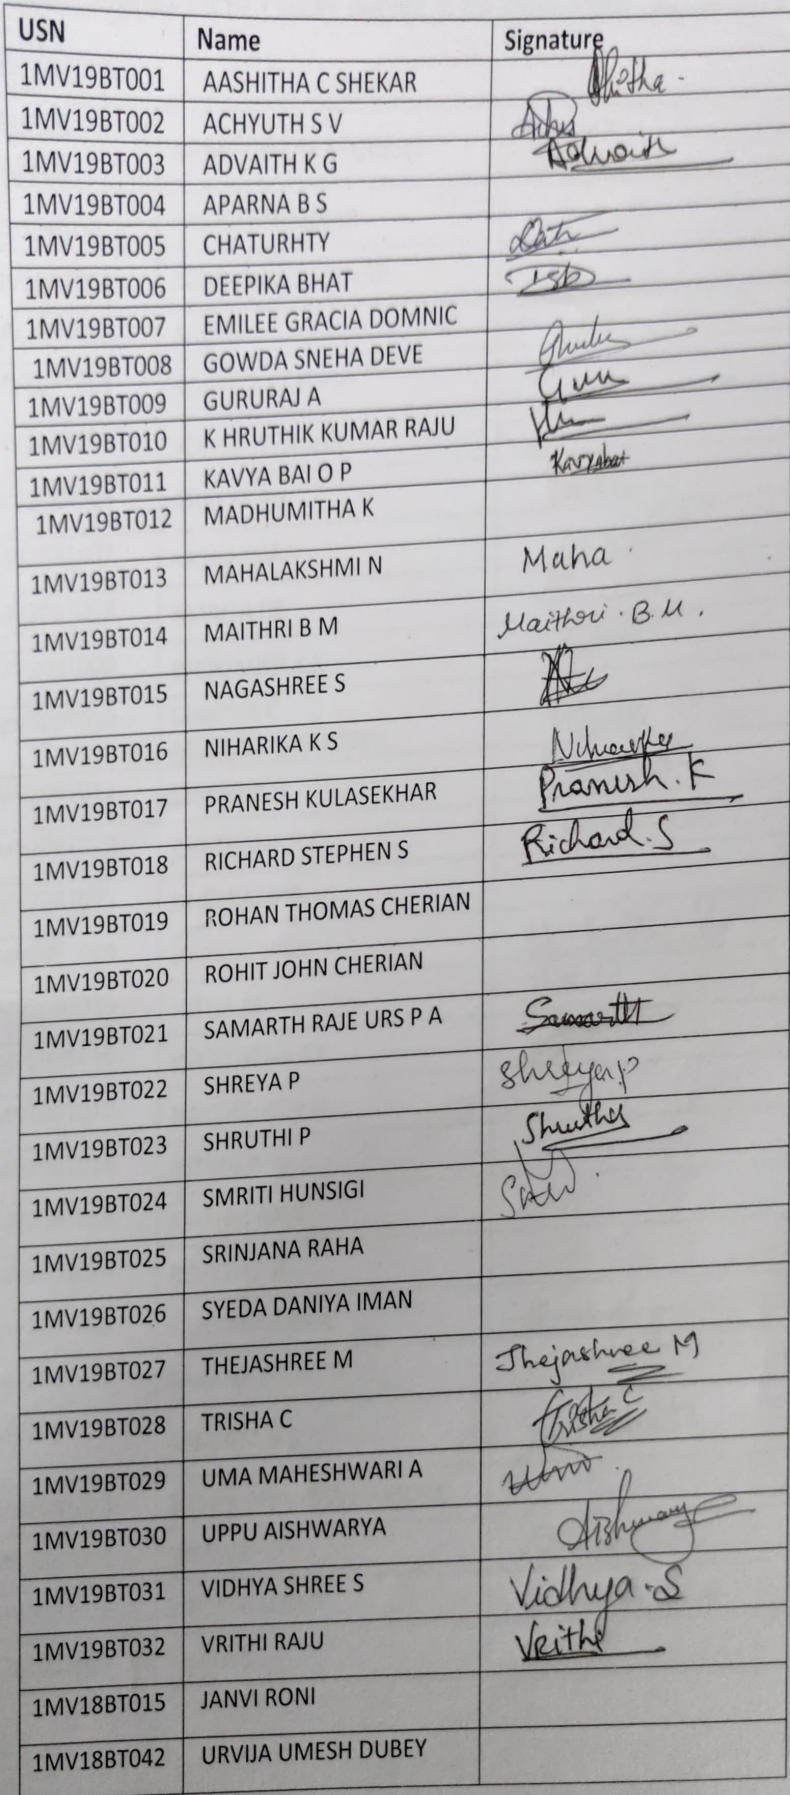 USN Name Signature
1MV19BT001 AASHITHA C SHEKAR
1MV19BT002 ACHYUTH S V
1MV19BT003 ADVAITH K G Advaith
1MV19BT004 APARNA B S
1MV19BT005 CHATURHTY
1MV19BT006 DEEPIKA BHAT
1MV19BT007 EMILEE GRACIA DOMNIC
1MV19BT008 GOWDA SNEHA DEVE
1MV19BT009 GURURAJ A
1MV19BT010 K HRUTHIK KUMAR RAJU
1MV19BT011 KAVYA BAI O P
1MV19BT012 MADHUMITHA K
1MV19BT013 MAHALAKSHMI N Maha
1MV19BT014 MAITHRI B M Maithri. B.M.
1MV19BT015 NAGASHREE S
1MV19BT016 NIHARIKA K S
1MV19BT017 PRANESH KULASEKHAR Pranesh. K
1MV19BT018 RICHARD STEPHEN S Richard. S
1MV19BT019 ROHAN THOMAS CHERIAN
1MV19BT020 ROHIT JOHN CHERIAN
1MV19BT021 SAMARTH RAJE URS P A Samarth
1MV19BT022 SHREYA P Shreya.p
1MV19BT023 SHRUTHI P
1MV19BT024 SMRITI HUNSIGI
1MV19BT025 SRINJANA RAHA
1MV19BT026 SYEDA DANIYA IMAN
1MV19BT027 THEJASHREE M Thejashree M
1MV19BT028 TRISHA C Trisha C
1MV19BT029 UMA MAHESHWARI A
1MV19BT030 UPPU AISHWARYA
1MV19BT031 VIDHYA SHREE S Vidhya.S
1MV19BT032 VRITHI RAJU Vrithi
1MV18BT015 JANVI RONI
1MV18BT042 URVIJA UMESH DUBEY